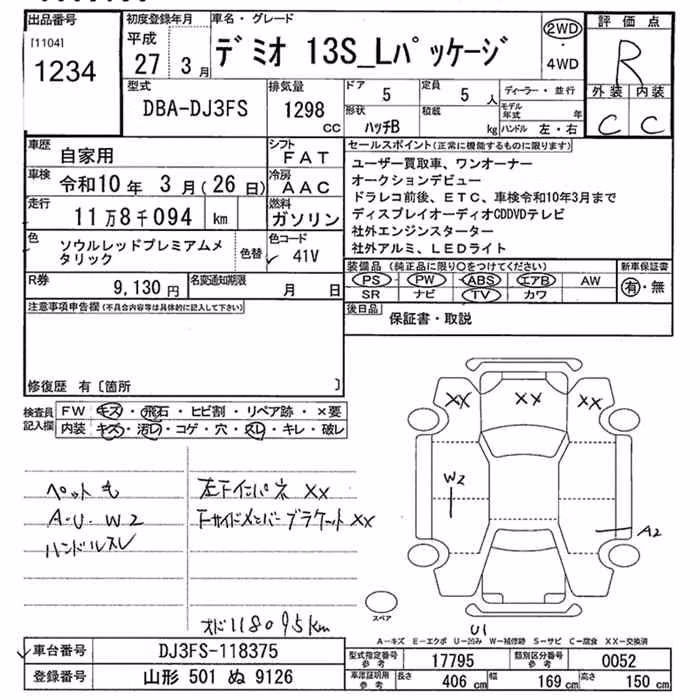 出品番号
[1104]
1234
初度登録年月
平成
27 3月
車名・グレード
デミオ 13S_Lパッケージ
2WD
・
4WD
評価点
R
外装 内装
C C
型式
DBA-DJ3FS
排気量
1298
CC
ドア
5
定員
5 人
形状
ハッチB
積載
kg
ディーラー・並行
モデル年式 年
ハンドル 左・右
車歴
自家用
シフト
FAT
車検
令和10年 3月(26日)
冷房
AAC
走行
11万8千094 km
燃料
ガソリン
色
ソウルレッドプレミアムメタリック
色替
色コード
41V
R券
9,130円
名変通知期限
月 日
セールスポイント(正常に機能するものに限ります)
ユーザー買取車、ワンオーナー
オークションデビュー
ドラレコ前後、ETC、車検令和10年3月まで
ディスプレイオーディオCDDVDテレビ
社外エンジンスターター
社外アルミ、LEDライト
装備品 (純正品に限り○をつけてください)
PS PW ABS エアB AW
SR ナビ TV カワ
新車保証書
有・無
後日品
保証書・取説
注意事項申告欄(不具合内容等は具体的に記入して下さい)
修復歴 有〔箇所 〕
検査員記入欄
FW キズ・飛石・ヒビ割・リペア跡・×要
内装 キズ・汚レ・コゲ・穴・スレ・キレ・破レ
ペット毛
A・U・W2
ハンドルスレ
左下インパネ XX
下サイドメンバーブラケットXX
オド118095km
XX XX XX
W2
A2
U1
スペア
A−キズ E−エクボ U−凹み W−補修跡 S−サビ C−腐食 XX−交換済
車台番号
DJ3FS-118375
登録番号
山形 501 ぬ 9126
型式指定番号 参考
17795
類別区分番号 参考
0052
車庫証明用 参考
長さ 406 cm
幅 169 cm
高さ 150 cm